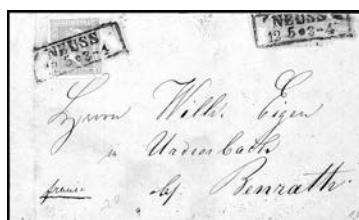 NEUSS
12 5 3-4
NEUSS
12 5 3-4
Herrn Wilh. Eigen
in Urdenbach
franco bei Benrath.